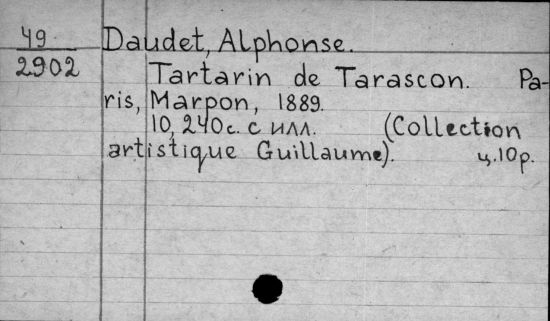 49
2902
Daudet, Alphonse.
Tartarin de Tarascon. Pa-
ris, Marpon, 1889.
10, 240с. с илл. (Collection
artistique Guillaume). ц.10р.